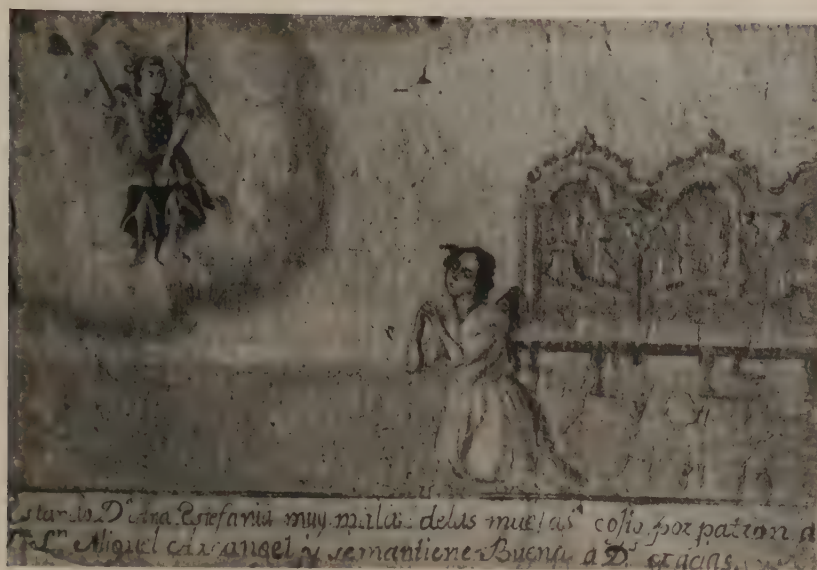 Estando D.ª Ana Estefania muy mala delas muelas cojio por patron a
S.n Miguel Arcangel y semantiene Buena a D.s gracias.